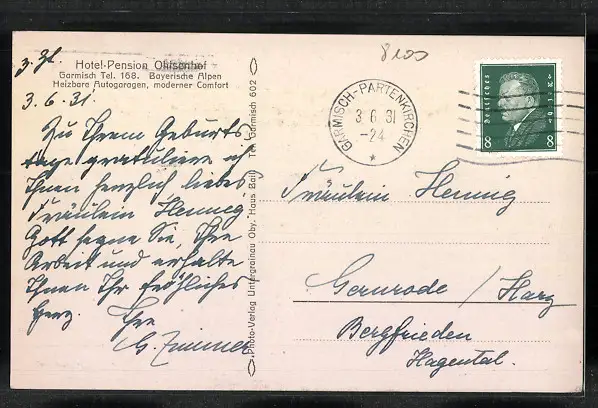 z. Zt.
Hotel-Pension Ohlsenhof
Garmisch Tel. 168. Bayerische Alpen
Heizbare Autogaragen, moderner Comfort
3.6.31.
Zu Ihrem Geburts
tage gratuliere ich
Ihnen herzlich liebes
Fräulein Hennig
Gott segne Sie, Ihre
Arbeit und erhalte
Ihnen Ihr fröhliches
Herz.
Ihre
G. Zimmer
Photo-Verlag Untergrainau Oby. Haus Bail Tel. Garmisch 602
8100
GARMISCH-PARTENKIRCHEN
3 6 31
-24
Deutsches Reich
8 8
Fräulein Hennig
Gernrode / Harz
Bergfrieden
Hagental.